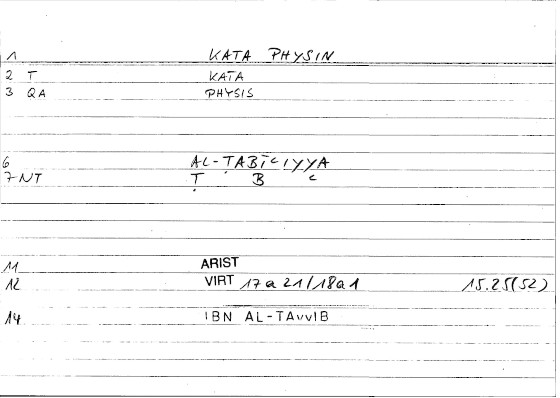 1 KATA PHYSIN
2 T KATA
3 QA PHYSIS
6 AL-ṬABĪʿIYYA
7 NT Ṭ B ʿ
11 ARIST
12 VIRT 17 a 21/18a1 15.25(52)
14 IBN AL-TAvvIB